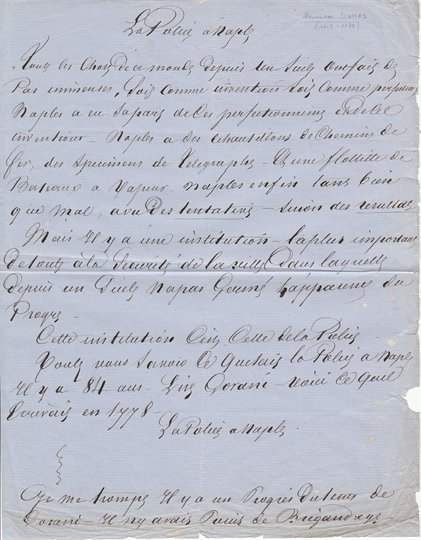 Alexandre DUMAS
(1802-1870)
La Police a Naples
Tous les choses de ce monde depuis un Siecle ont fait des
Pas immenses, soit comme invention soit comme perfection
Naples a eu sa part de ces perfectionnements et de ces
inventions - Naples a des echantillons de Chemins de
fer, des specimens de telegraphes - Et une flottille de
Bateaux a Vapeur Naples enfin tant bien
que mal, a vu des tentatives - sinon des resultats
Mais Il y a une institution - la plus importante
de toutes à la Securité de la ville dans laquelle
depuis un Siecle n'a pas Germé l'apparence du
Progres
Cette institution C'est Celle de la Police
Voulez vous savoir ce qu'etait la Police a Naples
Il y a 84 ans Lisez Gorani - voici ce qu'il
Ecrivait en 1778 -
La Police a Naples -
Je me trompe Il y a un Progres du temps de
Gorani - Il n'y avait Point de Brigandage